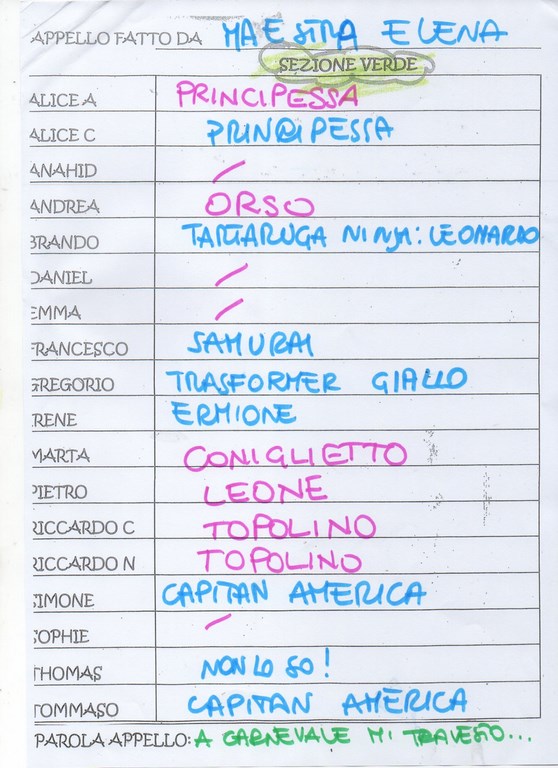 APPELLO FATTO DA MAESTRA ELENA
SEZIONE VERDE
ALICE A PRINCIPESSA
ALICE C PRINCIPESSA
ANAHID /
ANDREA ORSO
BRANDO TARTARUGA NINJA: LEONARDO
DANIEL /
EMMA /
FRANCESCO SAMURAI
GREGORIO TRASFORMER GIALLO
IRENE ERMIONE
MARTA CONIGLIETTO
PIETRO LEONE
RICCARDO C TOPOLINO
RICCARDO N TOPOLINO
SIMONE CAPITAN AMERICA
SOPHIE /
THOMAS NON LO SO!
TOMMASO CAPITAN AMERICA
PAROLA APPELLO: A CARNEVALE MI TRAVESTO...